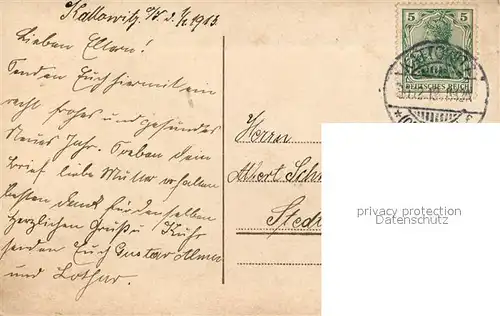 Kattowitz O/S d. 2/1 1913.
Lieben Eltern!
Senden Euch hiermit ein
recht frohes und gesundes
Neues Jahr. Soeben dein
Brief liebe Mutter erhalten
besten Dank für denselben
Herzlichen Gruß u. Küße
senden Euch Gustav Alma
und Lothar.
5 5
DEUTSCHES REICH
Herrn
Albert Sch
privacy protection
Datenschutz